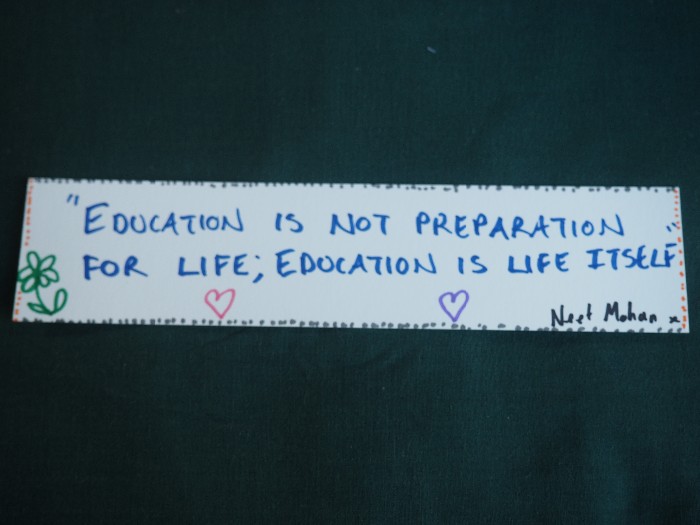 "EDUCATION IS NOT PREPARATION
FOR LIFE; EDUCATION IS LIFE ITSELF"
Neet Mohan x